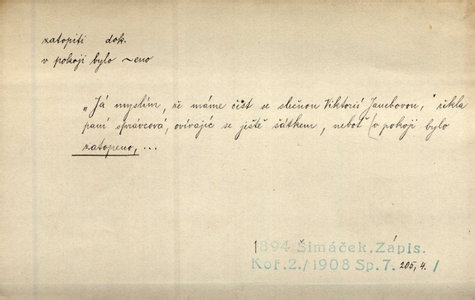 zatopiti dok.
v pokoji bylo ~eno
„Já myslím, že máme čest se slečnou Viktorií Janebovou," řekla
paní správcová, ovívajíc se ještě šátkem, neboť (v pokoji bylo
zatopeno, ...
1894 Šimáček, Zápis.
Koř.2./1908 Sp.7. 205, 4. /